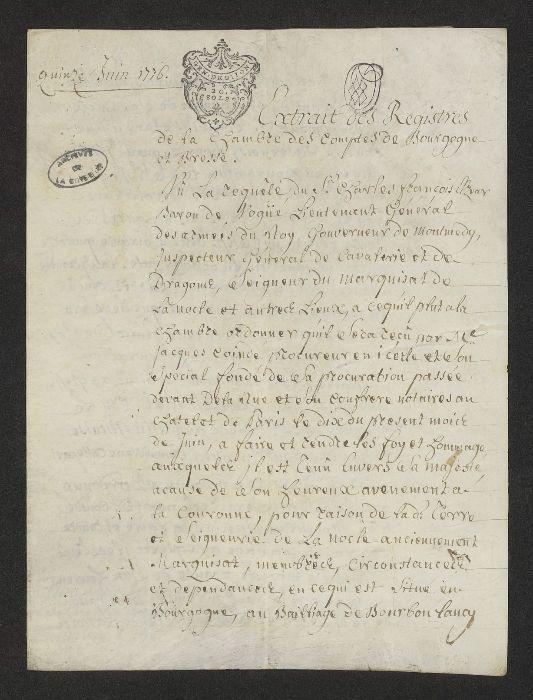 quinze Juin 1776.
GEN. DE DIJON
Extrait des Registres
de la Chambre des Comptes de Bourgogne
et Bresse.
ARCHIVES
DE
LA COTE D'OR
Vu La requête du Sr. Charles françois Elzear
Baron de Vogüé Lieutenant Général
des armees du Roy, Gouverneur de Montmedy,
Inspecteur General de Cavalerie et de
Dragons, Seigneur du Marquisat de
La nocle et autres Lieux, a cequil plut a la
Chambre ordonner quil sera reçu par Me
Jacques Cointe, procureur en icelle et son
special fondé de sa procuration passée
devant et son Confrere notaires au
Chatelet de Paris le dix du present mois
de Juin, a faire et rendre les foy et hommage
auxquels il est tenu Envers sa majesté
a cause de son heureux avenement a
la Couronne, pour raison de lad. Terre
et seigneurie de La nocle anciennement
Marquisat, membres, Circonstances
et dependances, en cequi est situé en
Bourgogne, au Bailliage de Bourbon Lancy